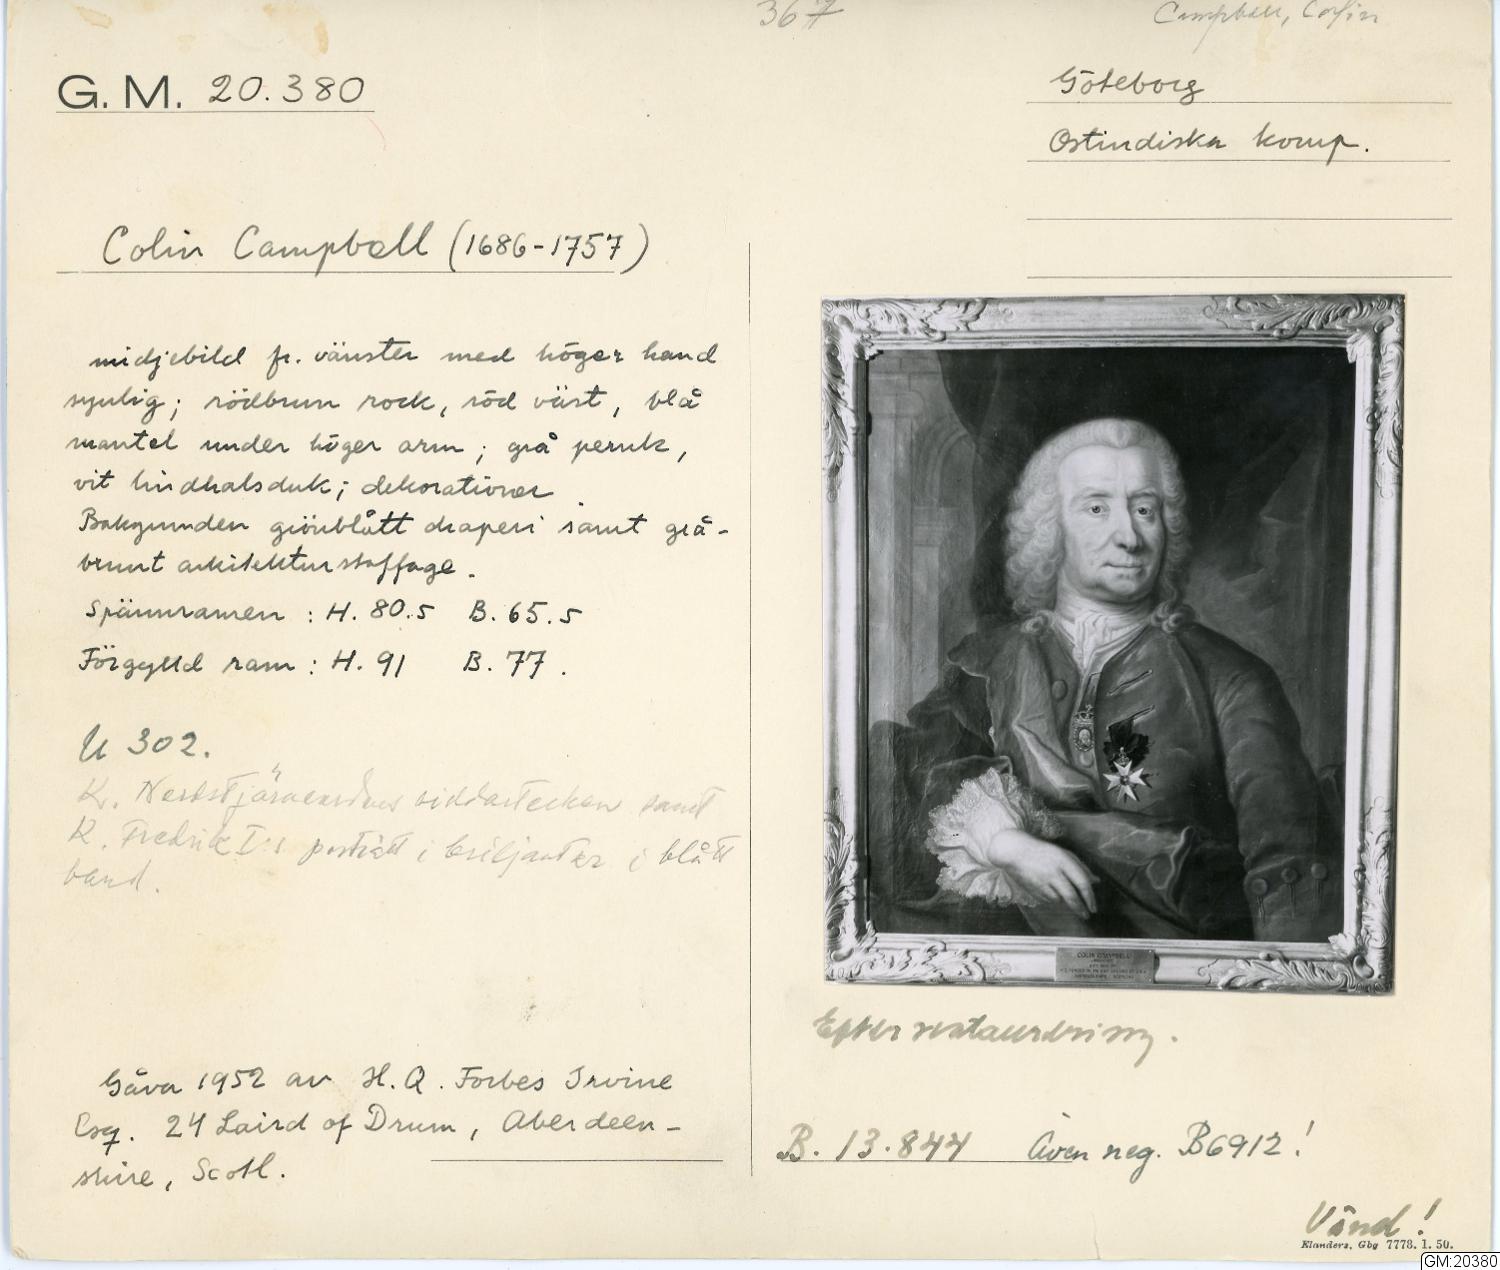 367
Campbell, Colin
G. M. 20.380
Göteborg
Ostindiska komp.
Colin Campbell (1686-1757)
midjebild fr. vänster med höger hand
synlig; rödbrun rock, röd väst, blå
mantel under höger arm; grå peruk,
vit lindhalsduk; dekorationer.
Bakgrunden grönblått draperi samt grå-
brunt arkitekturstaffage.
Spännramen : H. 80.5 B. 65.5
Förgylld ram : H. 91 B. 77.
U 302.
K. Nordstjärneordens riddartecken samt
K. Fredrik I:s porträtt i briljanter i blått
band.
COLIN CAMPBELL
Efter restaurering.
Gåva 1952 av H. Q. Forbes Irvine
Esq. 24 Laird of Drum, Aberdeen-
shire, Scotl.
B. 13.844 Även neg. B6912!
Vänd!
Elanders, Gbg 7778. 1. 50.
GM:20380